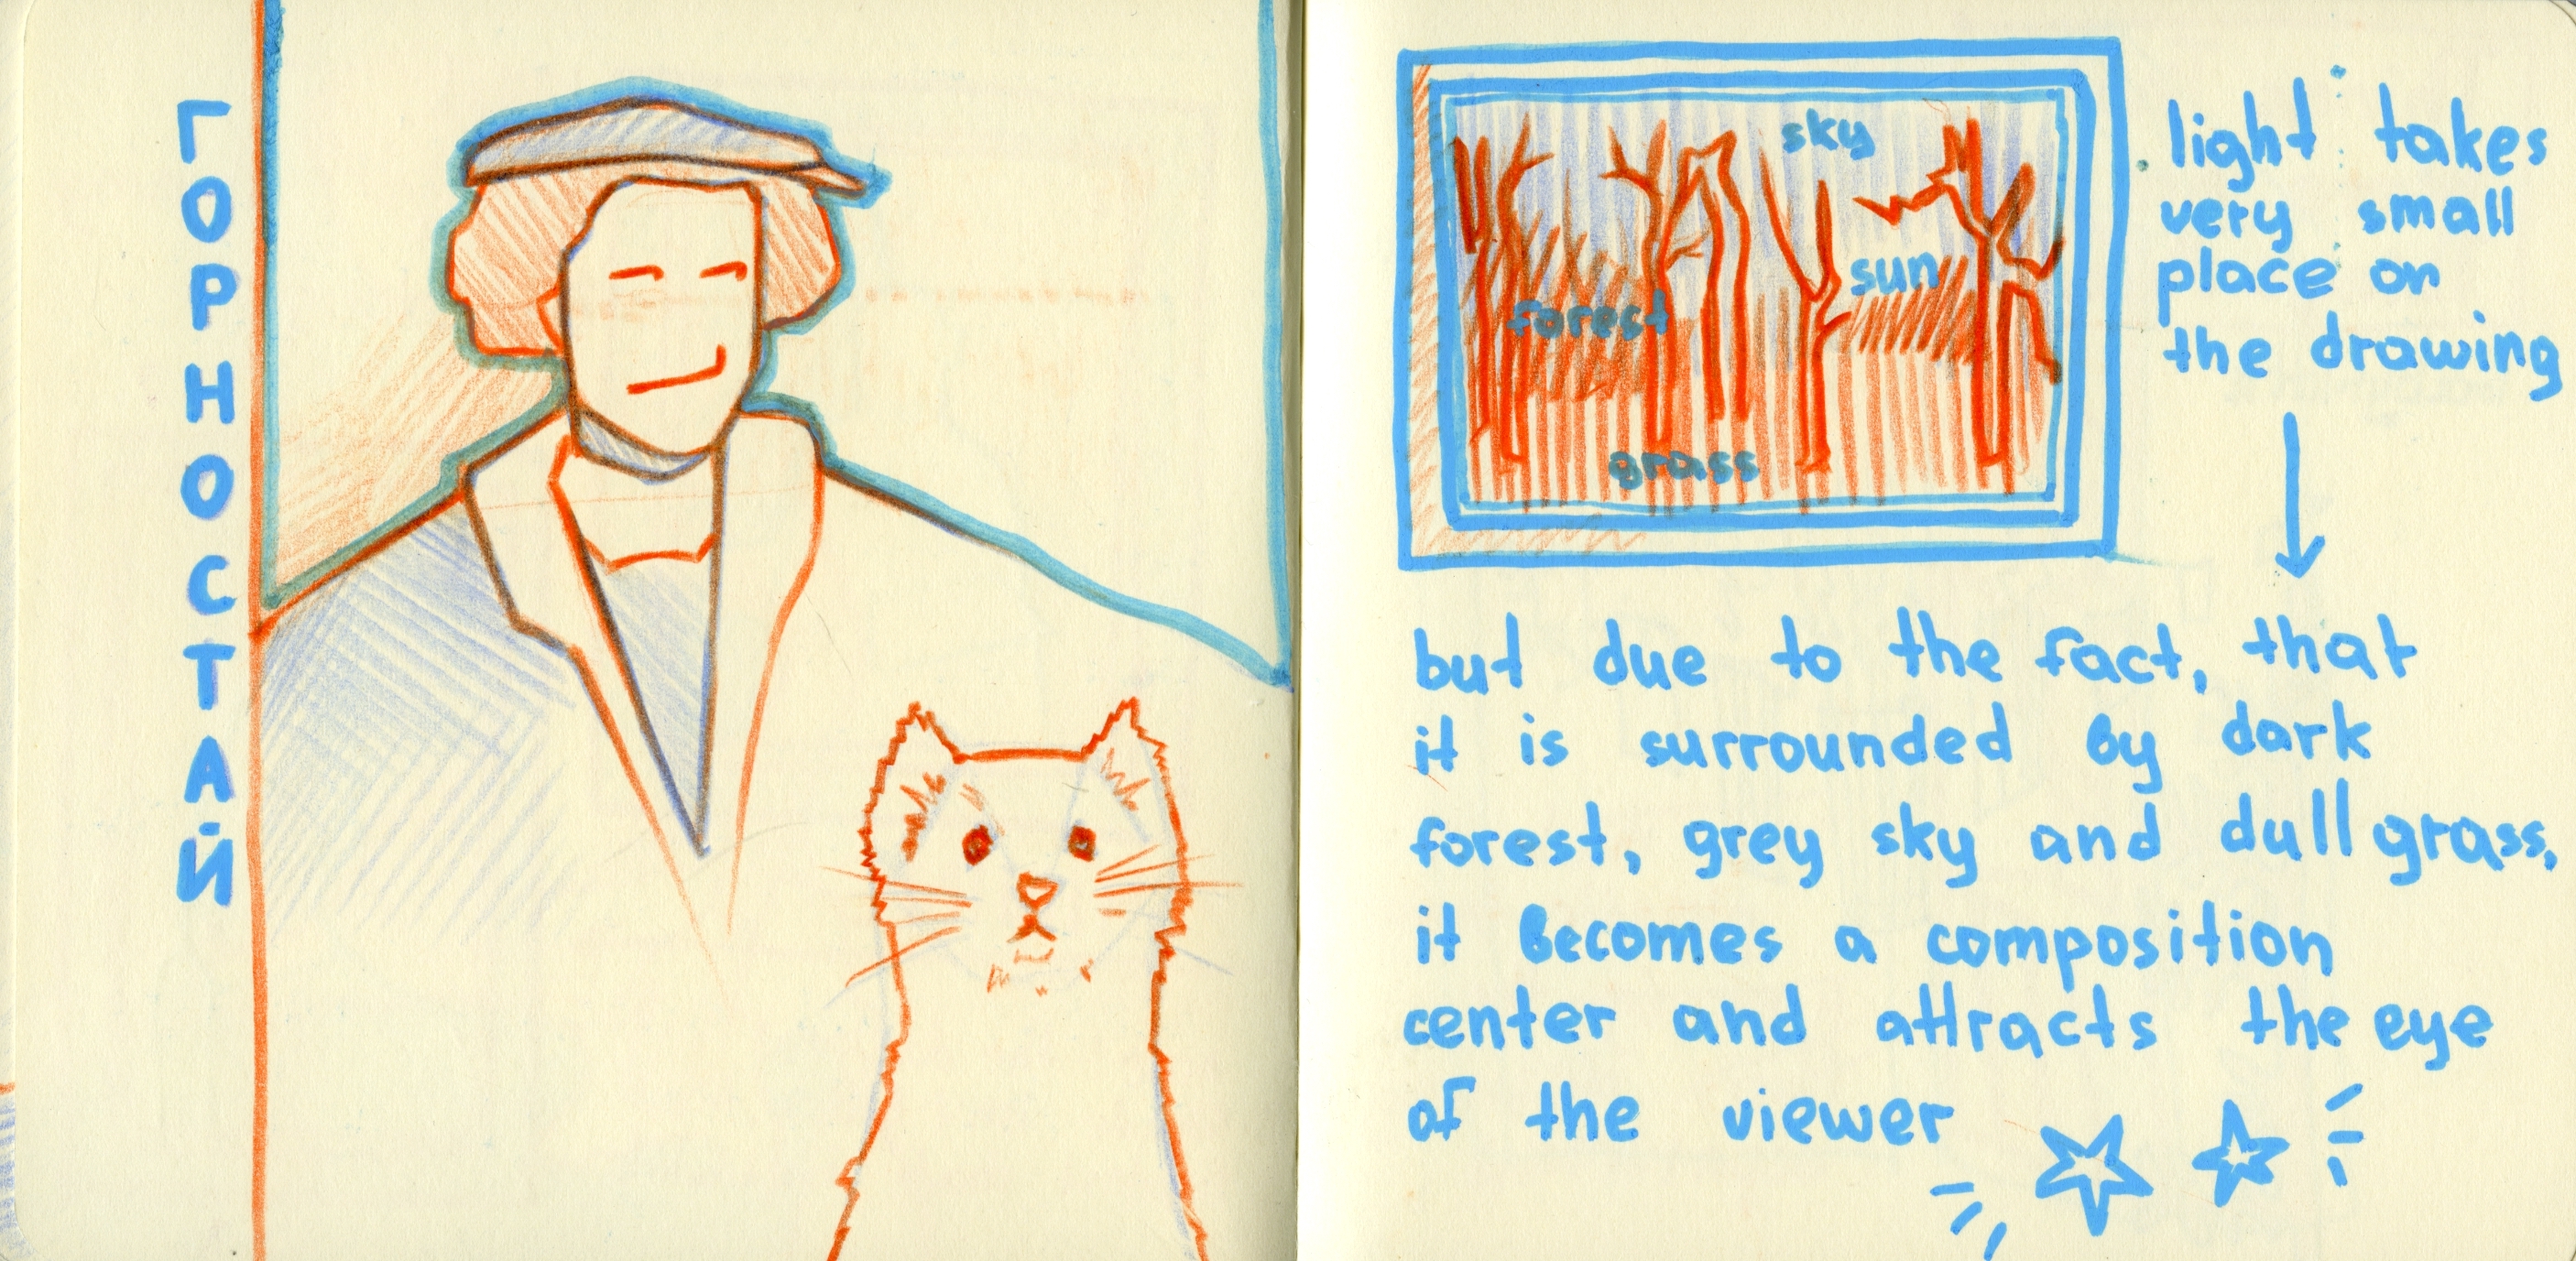 ГОРНОСТАЙ
sky
sun
forest
grass
light takes
very small
place on
the drawing
but due to the fact, that
it is surrounded by dark
forest, grey sky and dull grass,
it becomes a composition
center and attracts the eye
of the viewer